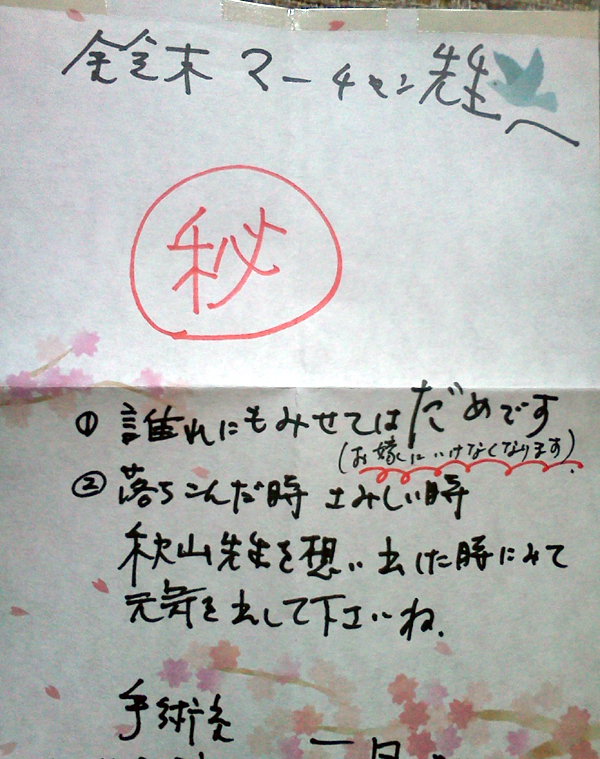 鈴木マーチャン先生へ
秘
① 誰れにもみせてはだめです
(お嫁にいけなくなります)
② 落ちこんだ時 さみしい時
秋山先生を想い出した時にみて
元気を出して下さいね.
手術
一日